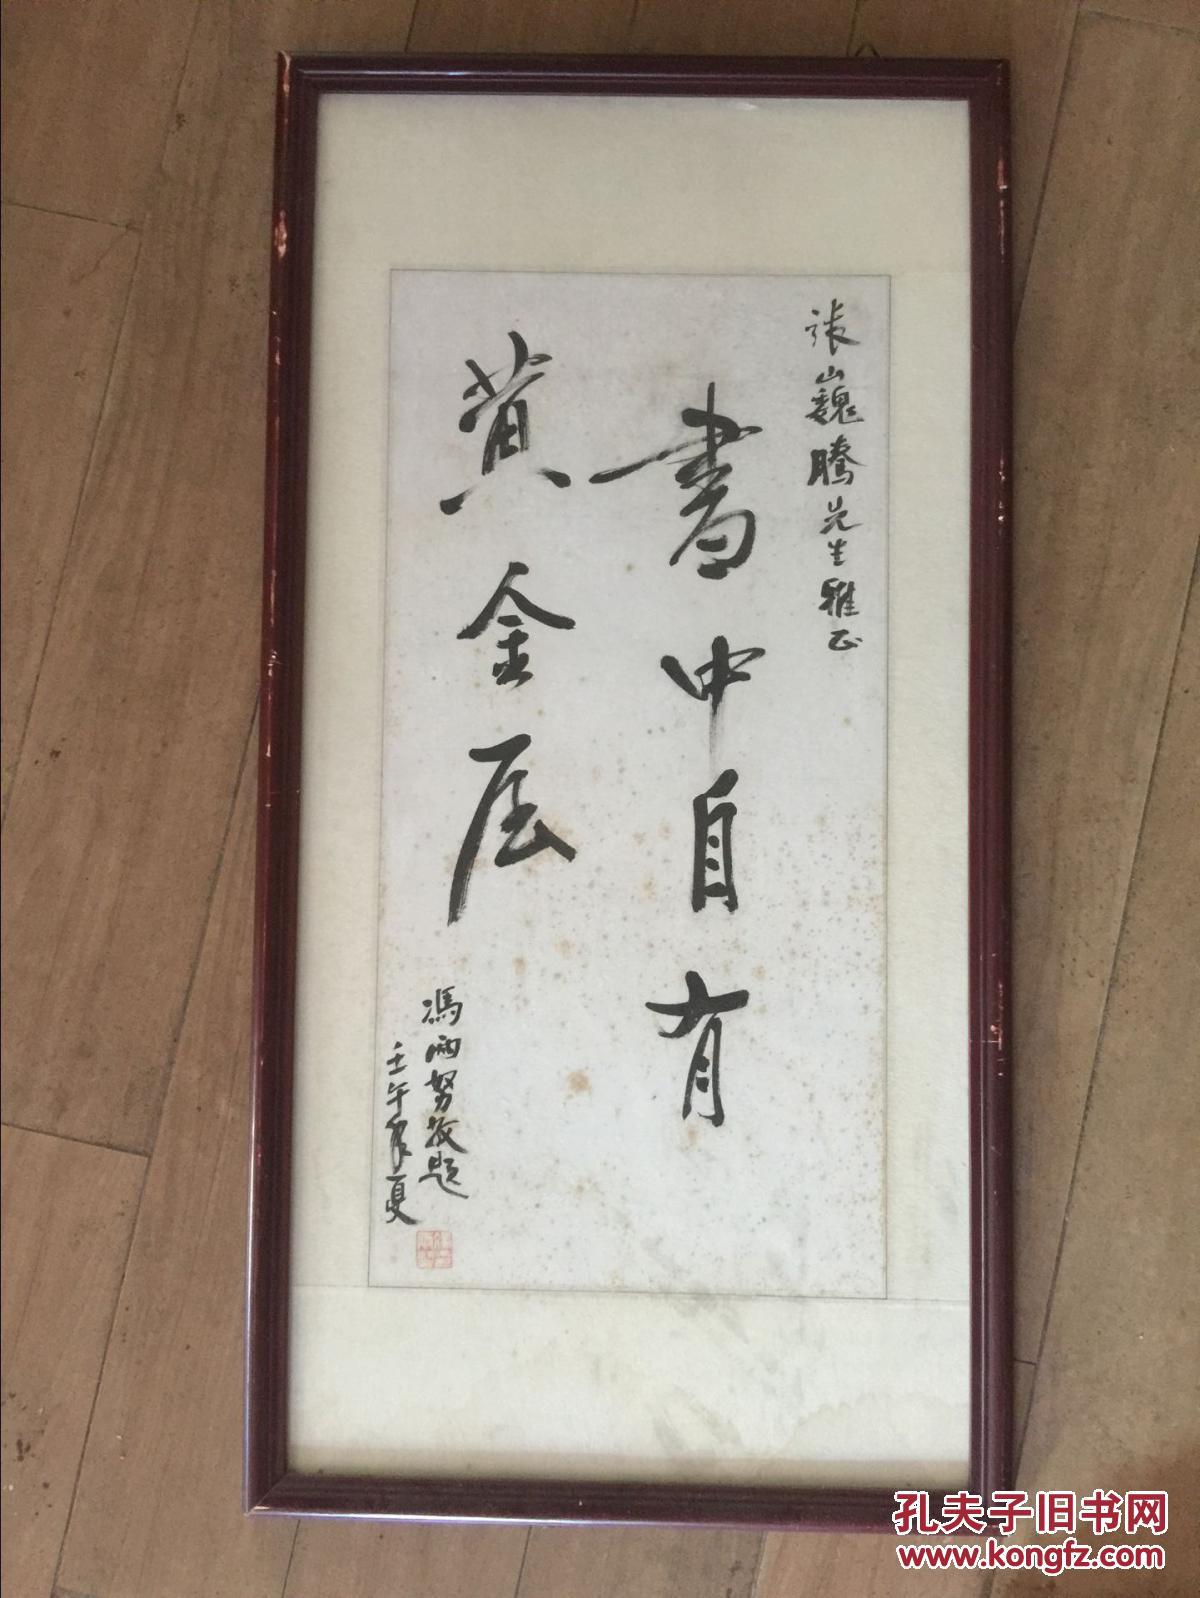 張巍騰先生雅正
書中自有
黄金屋
馮両努敬題
壬午年夏
孔夫子旧书网
www.kongfz.com